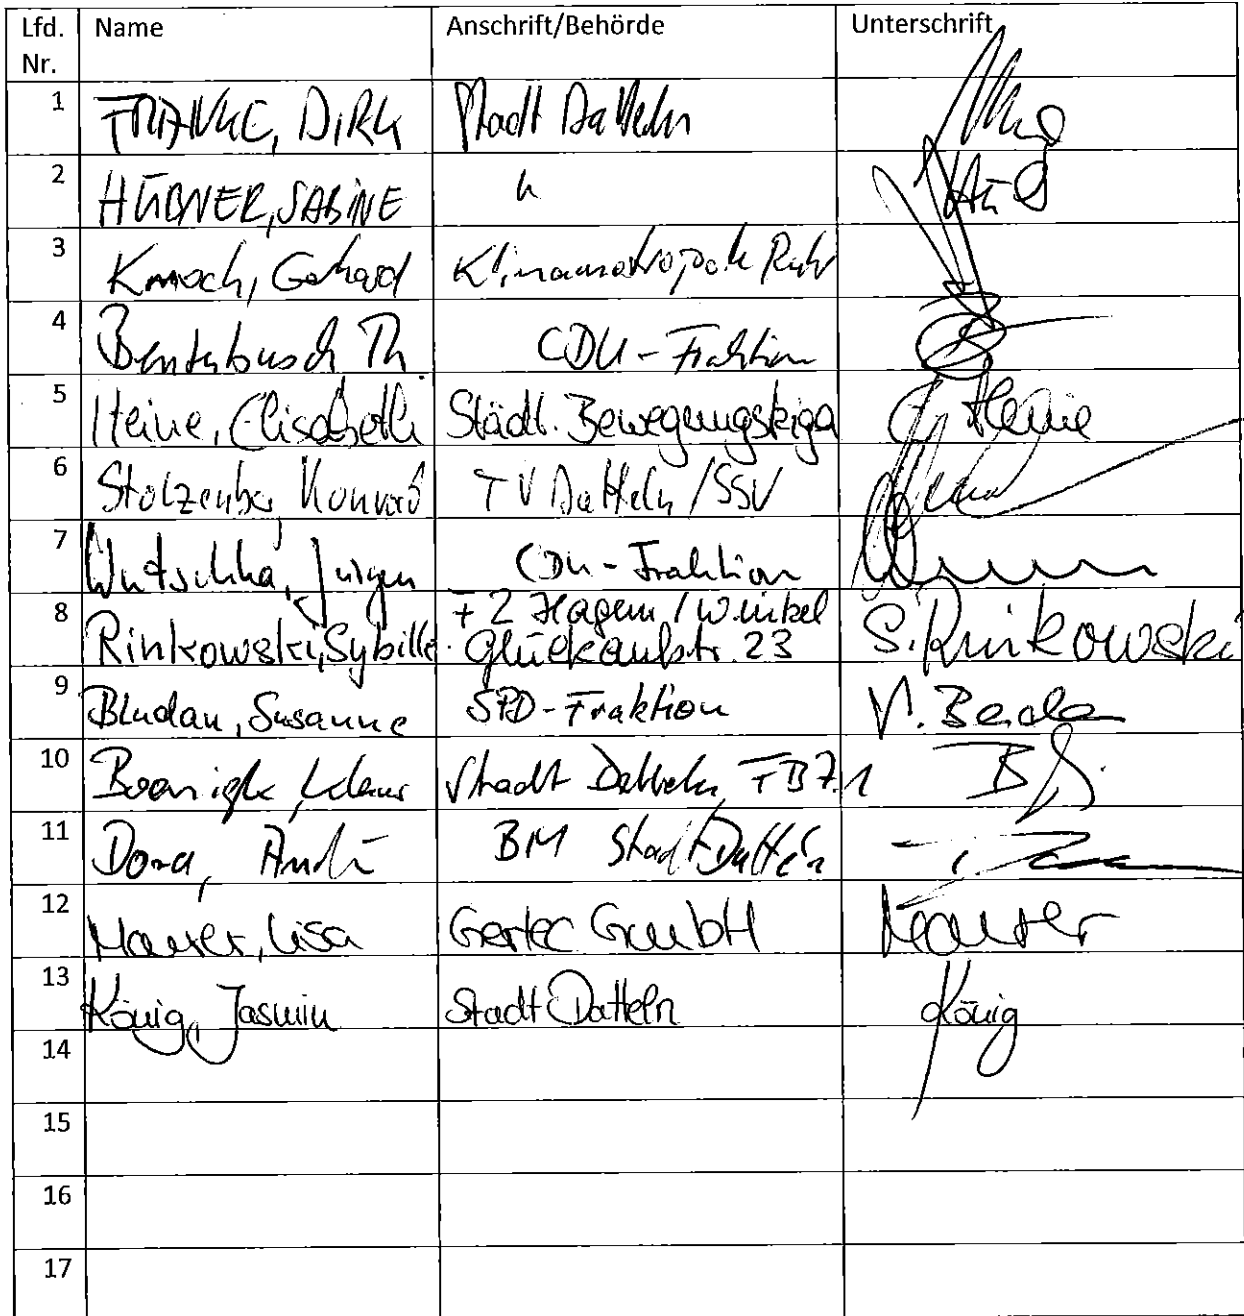 Lfd. Nr. Name Anschrift/Behörde Unterschrift
1 FRANKE, DIRK Stadt Datteln
2 HÜBNER, SABINE " Hüb
3 Knoch, Gerhard Klimametropole Ruhr
4 Bentebusch Th CDU-Fraktion
5 Heine, Elisabeth Städt. Bewegungskiga E Heine
6 Stolzenbg Konrad TV Datteln / SSV
7 Wutschka, Jürgen CDU-Fraktion
8 Rinkowski, Sybille FZ Hagem / Winkel
Glückaufstr. 23 S. Rinkowski
9 Bludau, Susanne SPD-Fraktion
10 Klaus Stadt Datteln, FB 7.1
11 Dora, André BM Stadt Datteln
12 Maurer, Lisa Gertec GmbH Maurer
13 König, Jasmin Stadt Datteln König
14
15
16
17